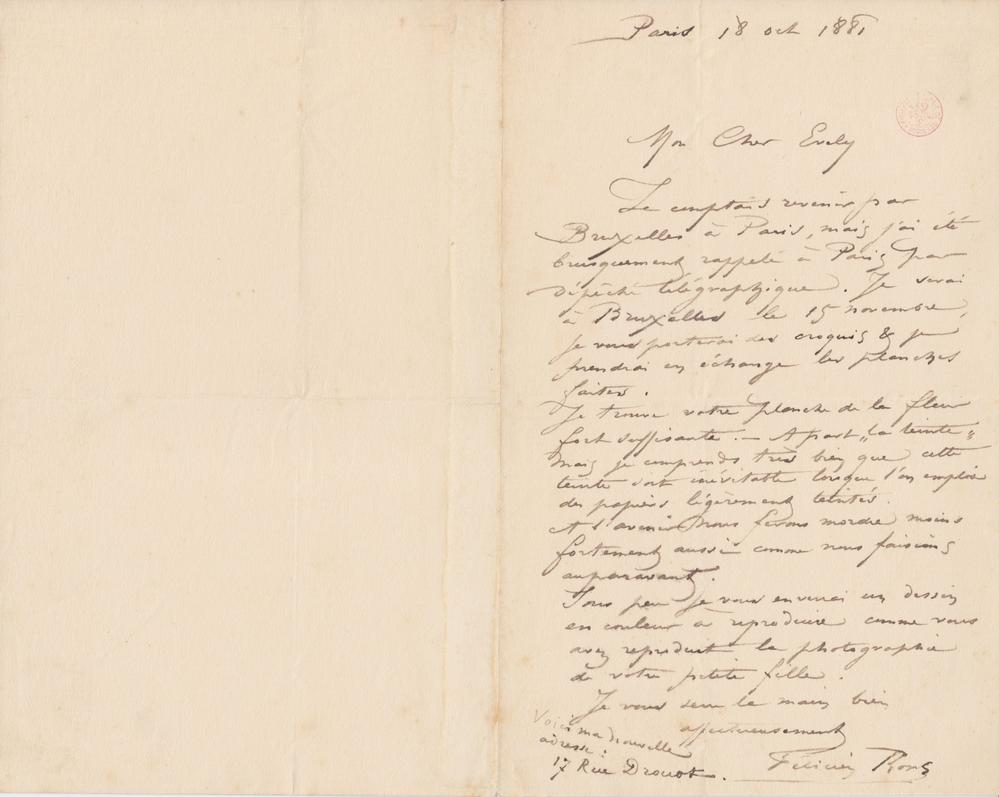 Paris 18 oct 1881
Mon Cher Evely
Je comptais revenir par
Bruxelles à Paris, mais j'ai été
brusquement rappelé à Paris par
dépêche télégraphique. Je serai
à Bruxelles le 15 novembre,
je vous porterai des croquis & je
prendrai en échange les planches
faites.
Je trouve votre planche de la fleur
fort suffisante. — A part „la teinte"
mais je comprends très bien que cette
teinte soit inévitable lorsque l'on emploie
des papiers légèrement teintés.
A l'avenir nous ferons mordre moins
fortement aussi comme nous faisions
auparavant.
Sous peu je vous enverrai un dessin
en couleur à reproduire comme vous
avez reproduit la photographie
de votre petite fille.
Je vous serre la main bien
affectueusement
Félicien Rops
Voici ma nouvelle
adresse:
17 Rue Drouot.